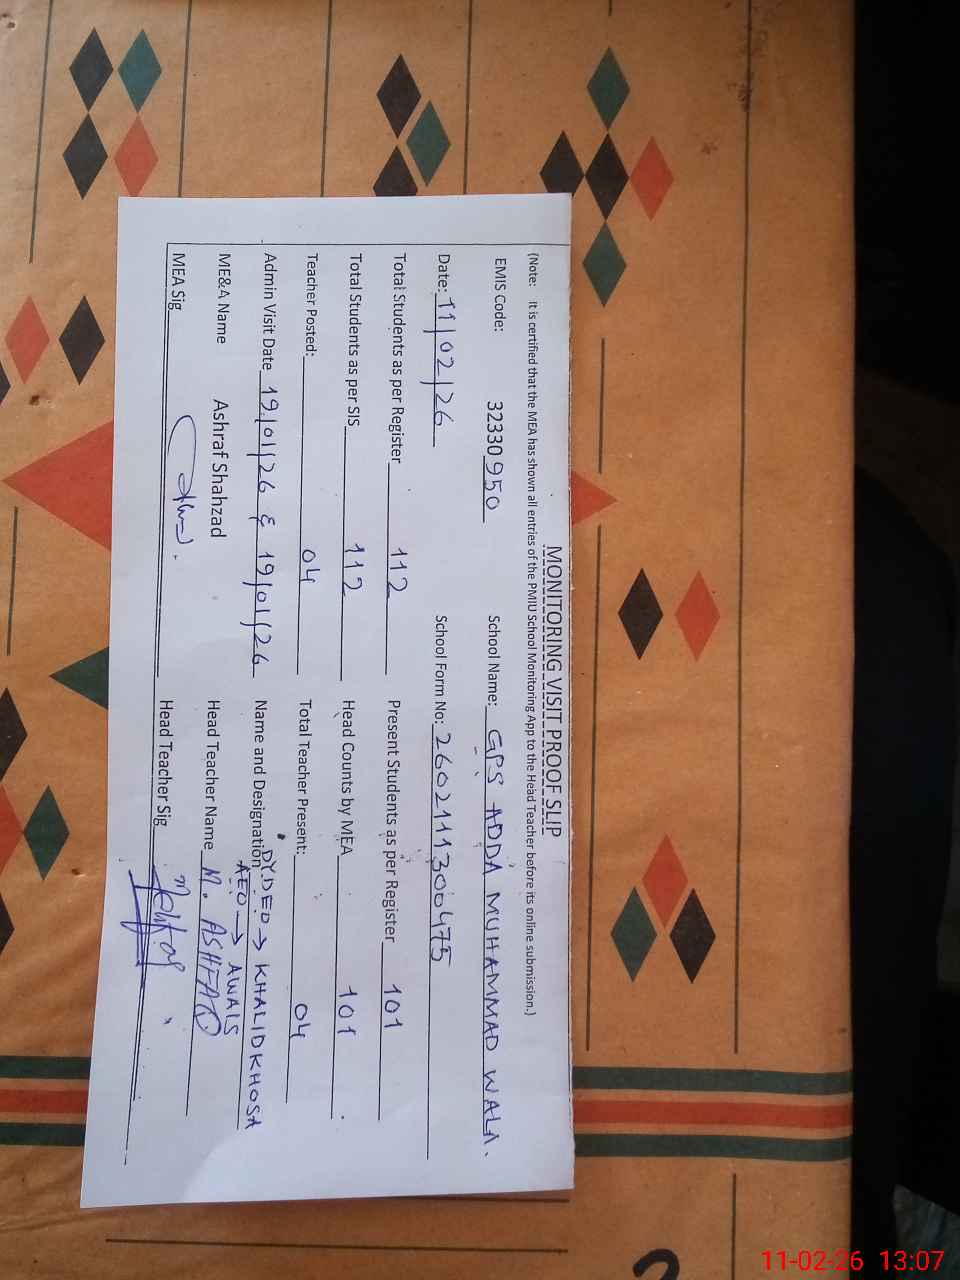 MONITORING VISIT PROOF SLIP
(Note: It is certified that the MEA has shown all entries of the PMIU School Monitoring App to the Head Teacher before its online submission.)
EMIS Code: 32330950 School Name: GPS ADDA MUHAMMAD WALA.
Date: 11/02/26 School Form No: 2602111300475
Total Students as per Register 112 Present Students as per Register 101
Total Students as per SIS 112 Head Counts by MEA 101
Teacher Posted: 04 Total Teacher Present: 04
Admin Visit Date 19/01/26 & 19/01/26 Name and Designation DY.DEO → KHALID KHOSA
AEO → AWAIS
ME&A Name Ashraf Shahzad Head Teacher Name M. ASHFAQ
MEA Sig Head Teacher Sig
11-02-26 13:07